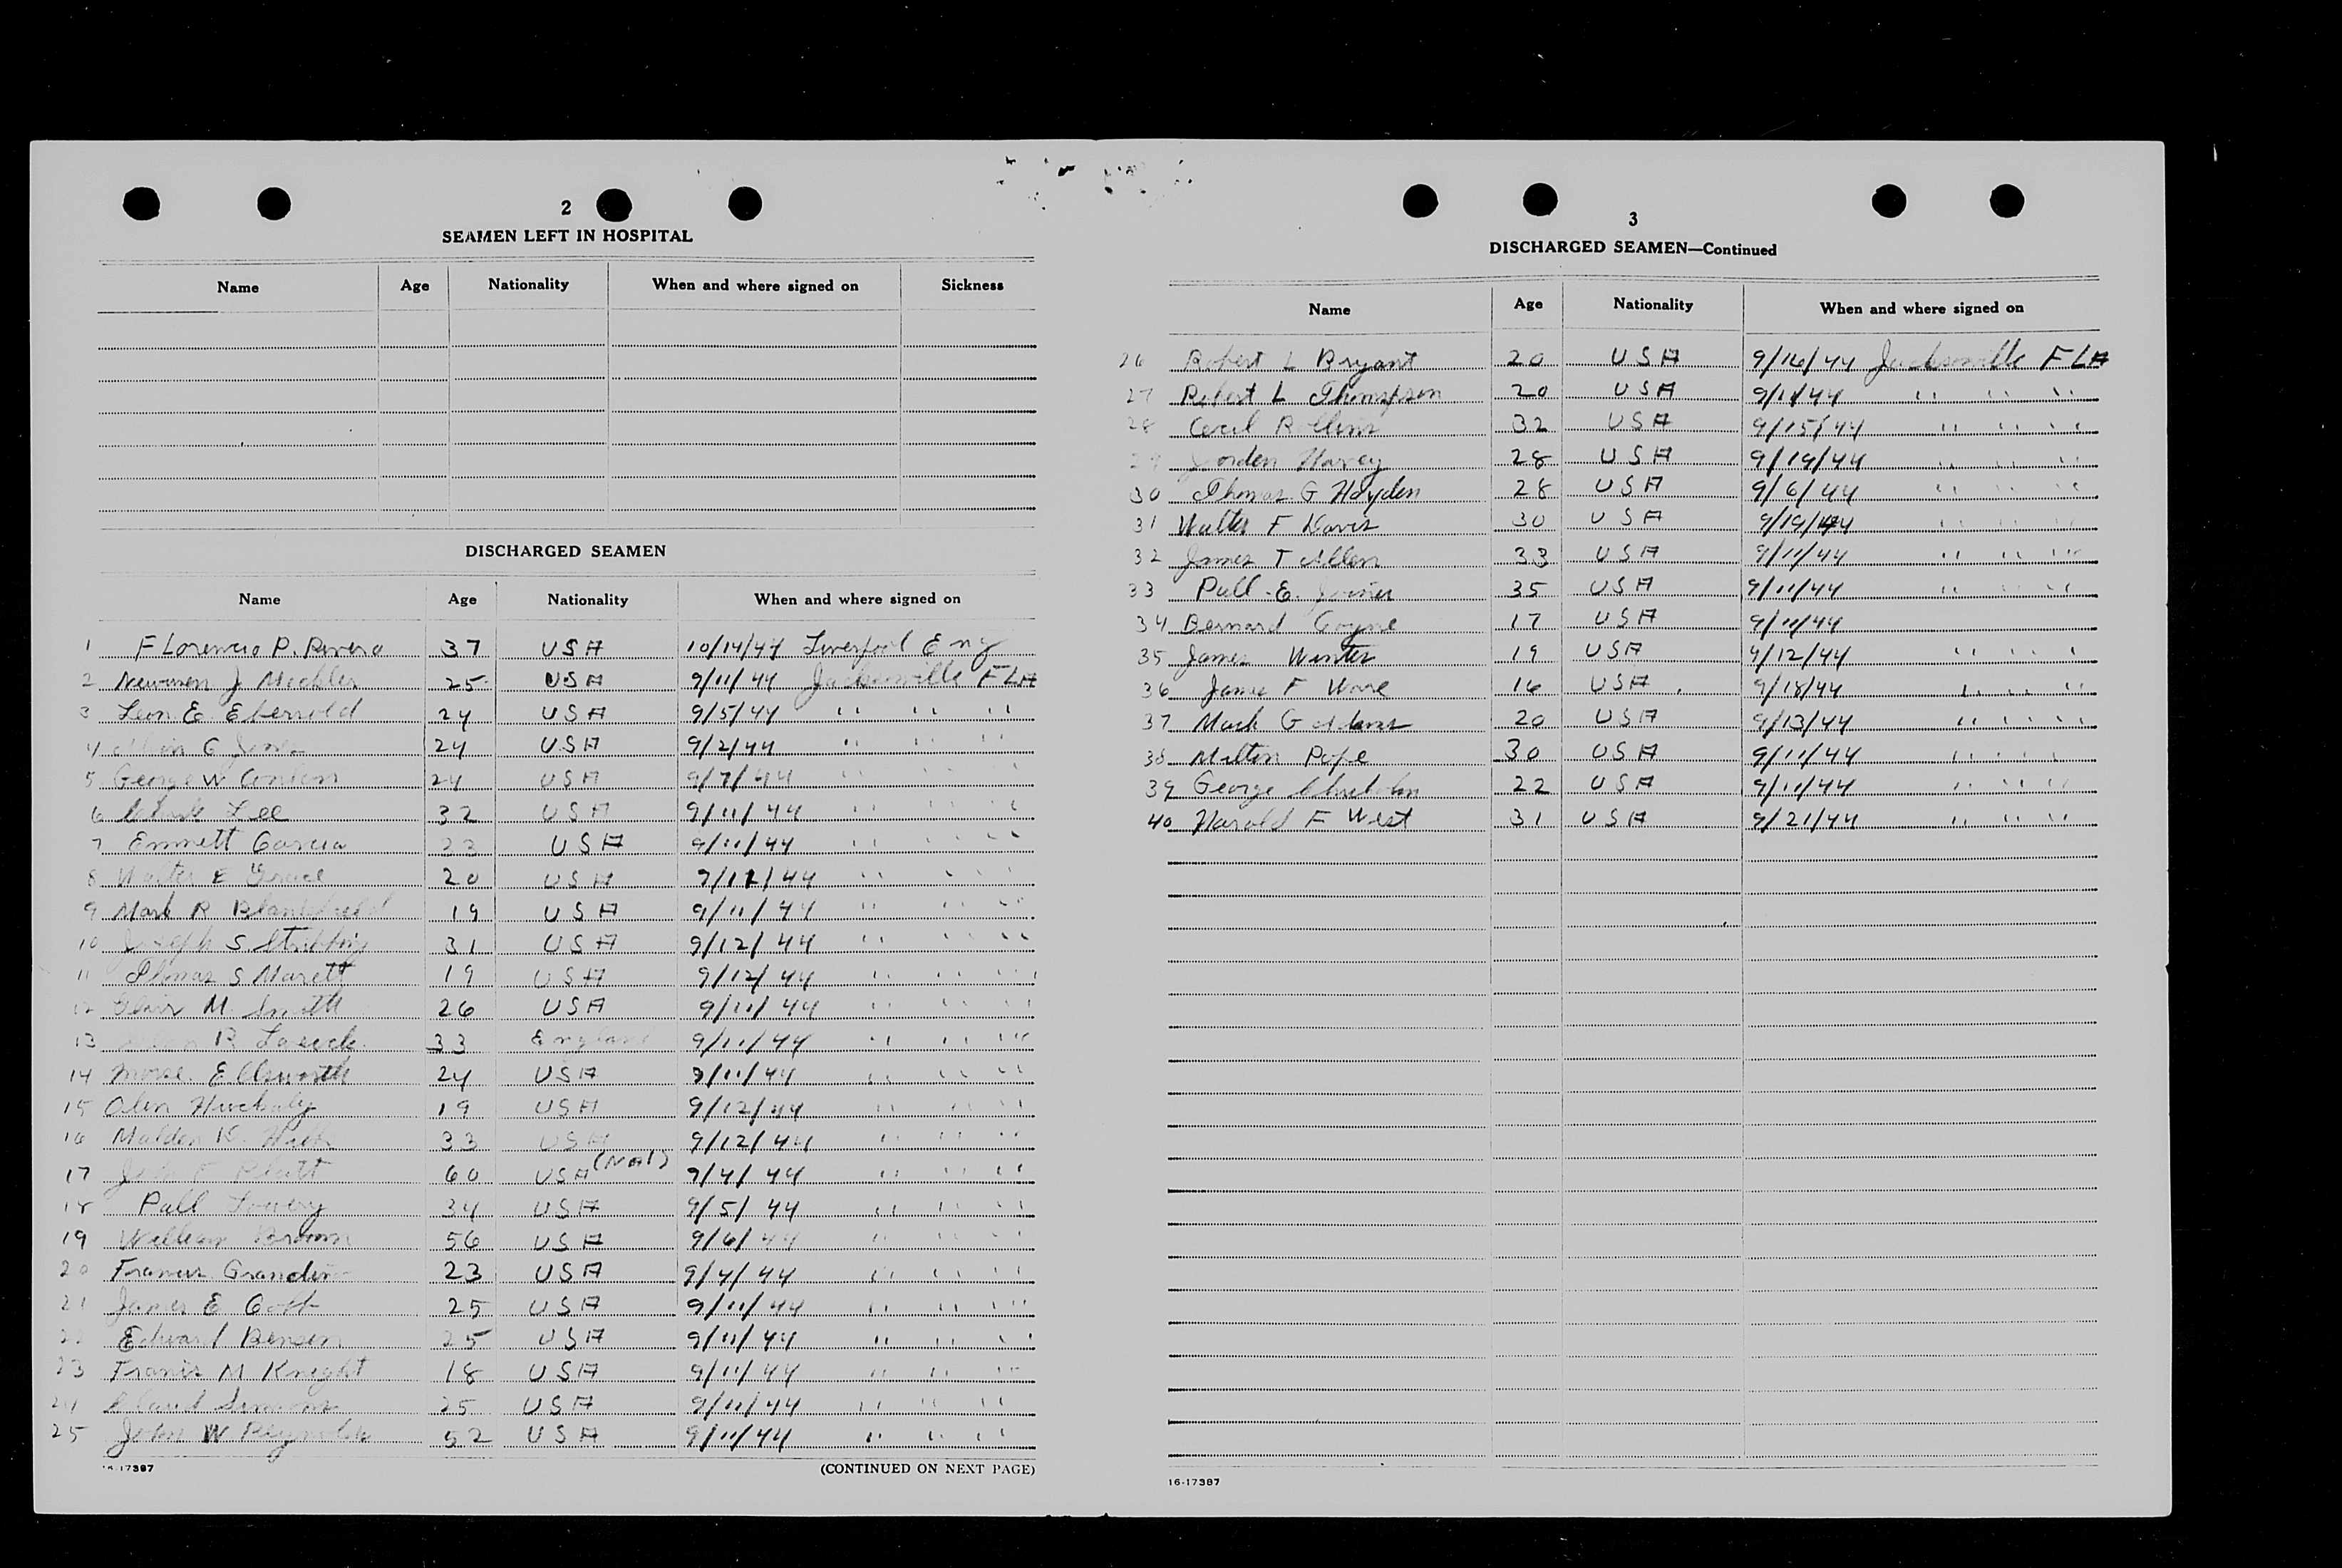 2
SEAMEN LEFT IN HOSPITAL
Name Age Nationality When and where signed on Sickness
DISCHARGED SEAMEN
Name Age Nationality When and where signed on
1 FLorencio P. Rivera 37 USA 10/14/44 Liverpool Eng
2 Newman J Mechler 25 USA 9/11/44 Jacksonville FLA
3 Leon E Eberrold 24 USA 9/5/44 " " "
4 G 24 USA 9/2/44 " " "
5 George W 24 USA 9/7/44 " " "
6 Lee 32 USA 9/11/44 " " "
7 Emmett Garcia 22 USA 9/11/44 " " "
8 Walter E 20 USA 9/12/44 " " "
9 Mark R 19 USA 9/11/44 " " "
10 Joseph S. 31 USA 9/12/44 " " "
11 Thomas S Marett 19 USA 9/12/44 " " "
12 M. Smith 26 USA 9/11/44 " " "
13 R 33 England 9/11/44 " " "
14 Morse. Ellsworth 24 USA 9/11/44 " " "
15 Olen 19 USA 9/12/44 " " "
16 Malden 33 USA 9/12/44 " " "
17 60 USA (Nat) 9/4/44 " " "
18 Pall Lowery 34 USA 9/5/44 " " "
19 William Brown 56 USA 9/6/44 " " "
20 Francis Grandin 23 USA 9/4/44 " " "
21 James E Cobb 25 USA 9/11/44 " " "
22 Edward Bensen 25 USA 9/11/44 " " "
23 Francis M Knight 18 USA 9/11/44 " " "
24 Claud 25 USA 9/11/44 " " "
25 John W Reynolds 52 USA 9/11/44 " " "
16-17387 (CONTINUED ON NEXT PAGE)
3
DISCHARGED SEAMEN—Continued
Name Age Nationality When and where signed on
26 Robert L Bryant 20 USA 9/16/44 Jacksonville FLA
27 Robert L Thompson 20 USA 9/11/44 " " "
28 Cecil 32 USA 9/15/44 " " "
29 Jorden Harvey 28 USA 9/19/44 " " "
30 Thomas G Hayden 28 USA 9/6/44 " " "
31 Walter F Davis 30 USA 9/19/44 " " "
32 James T Allen 33 USA 9/11/44 " " "
33 Pall E. Joiner 35 USA 9/11/44 " " "
34 Bernard Coyne 17 USA 9/11/44
35 James Winter 19 USA 9/12/44 " " "
36 F 16 USA 9/18/44 " " "
37 Mark G Adams 20 USA 9/13/44 " " "
38 Milton Pope 30 USA 9/11/44 " " "
39 George Chisholm 22 USA 9/11/44 " " "
40 Harold F West 31 USA 9/21/44 " " "
16-17387